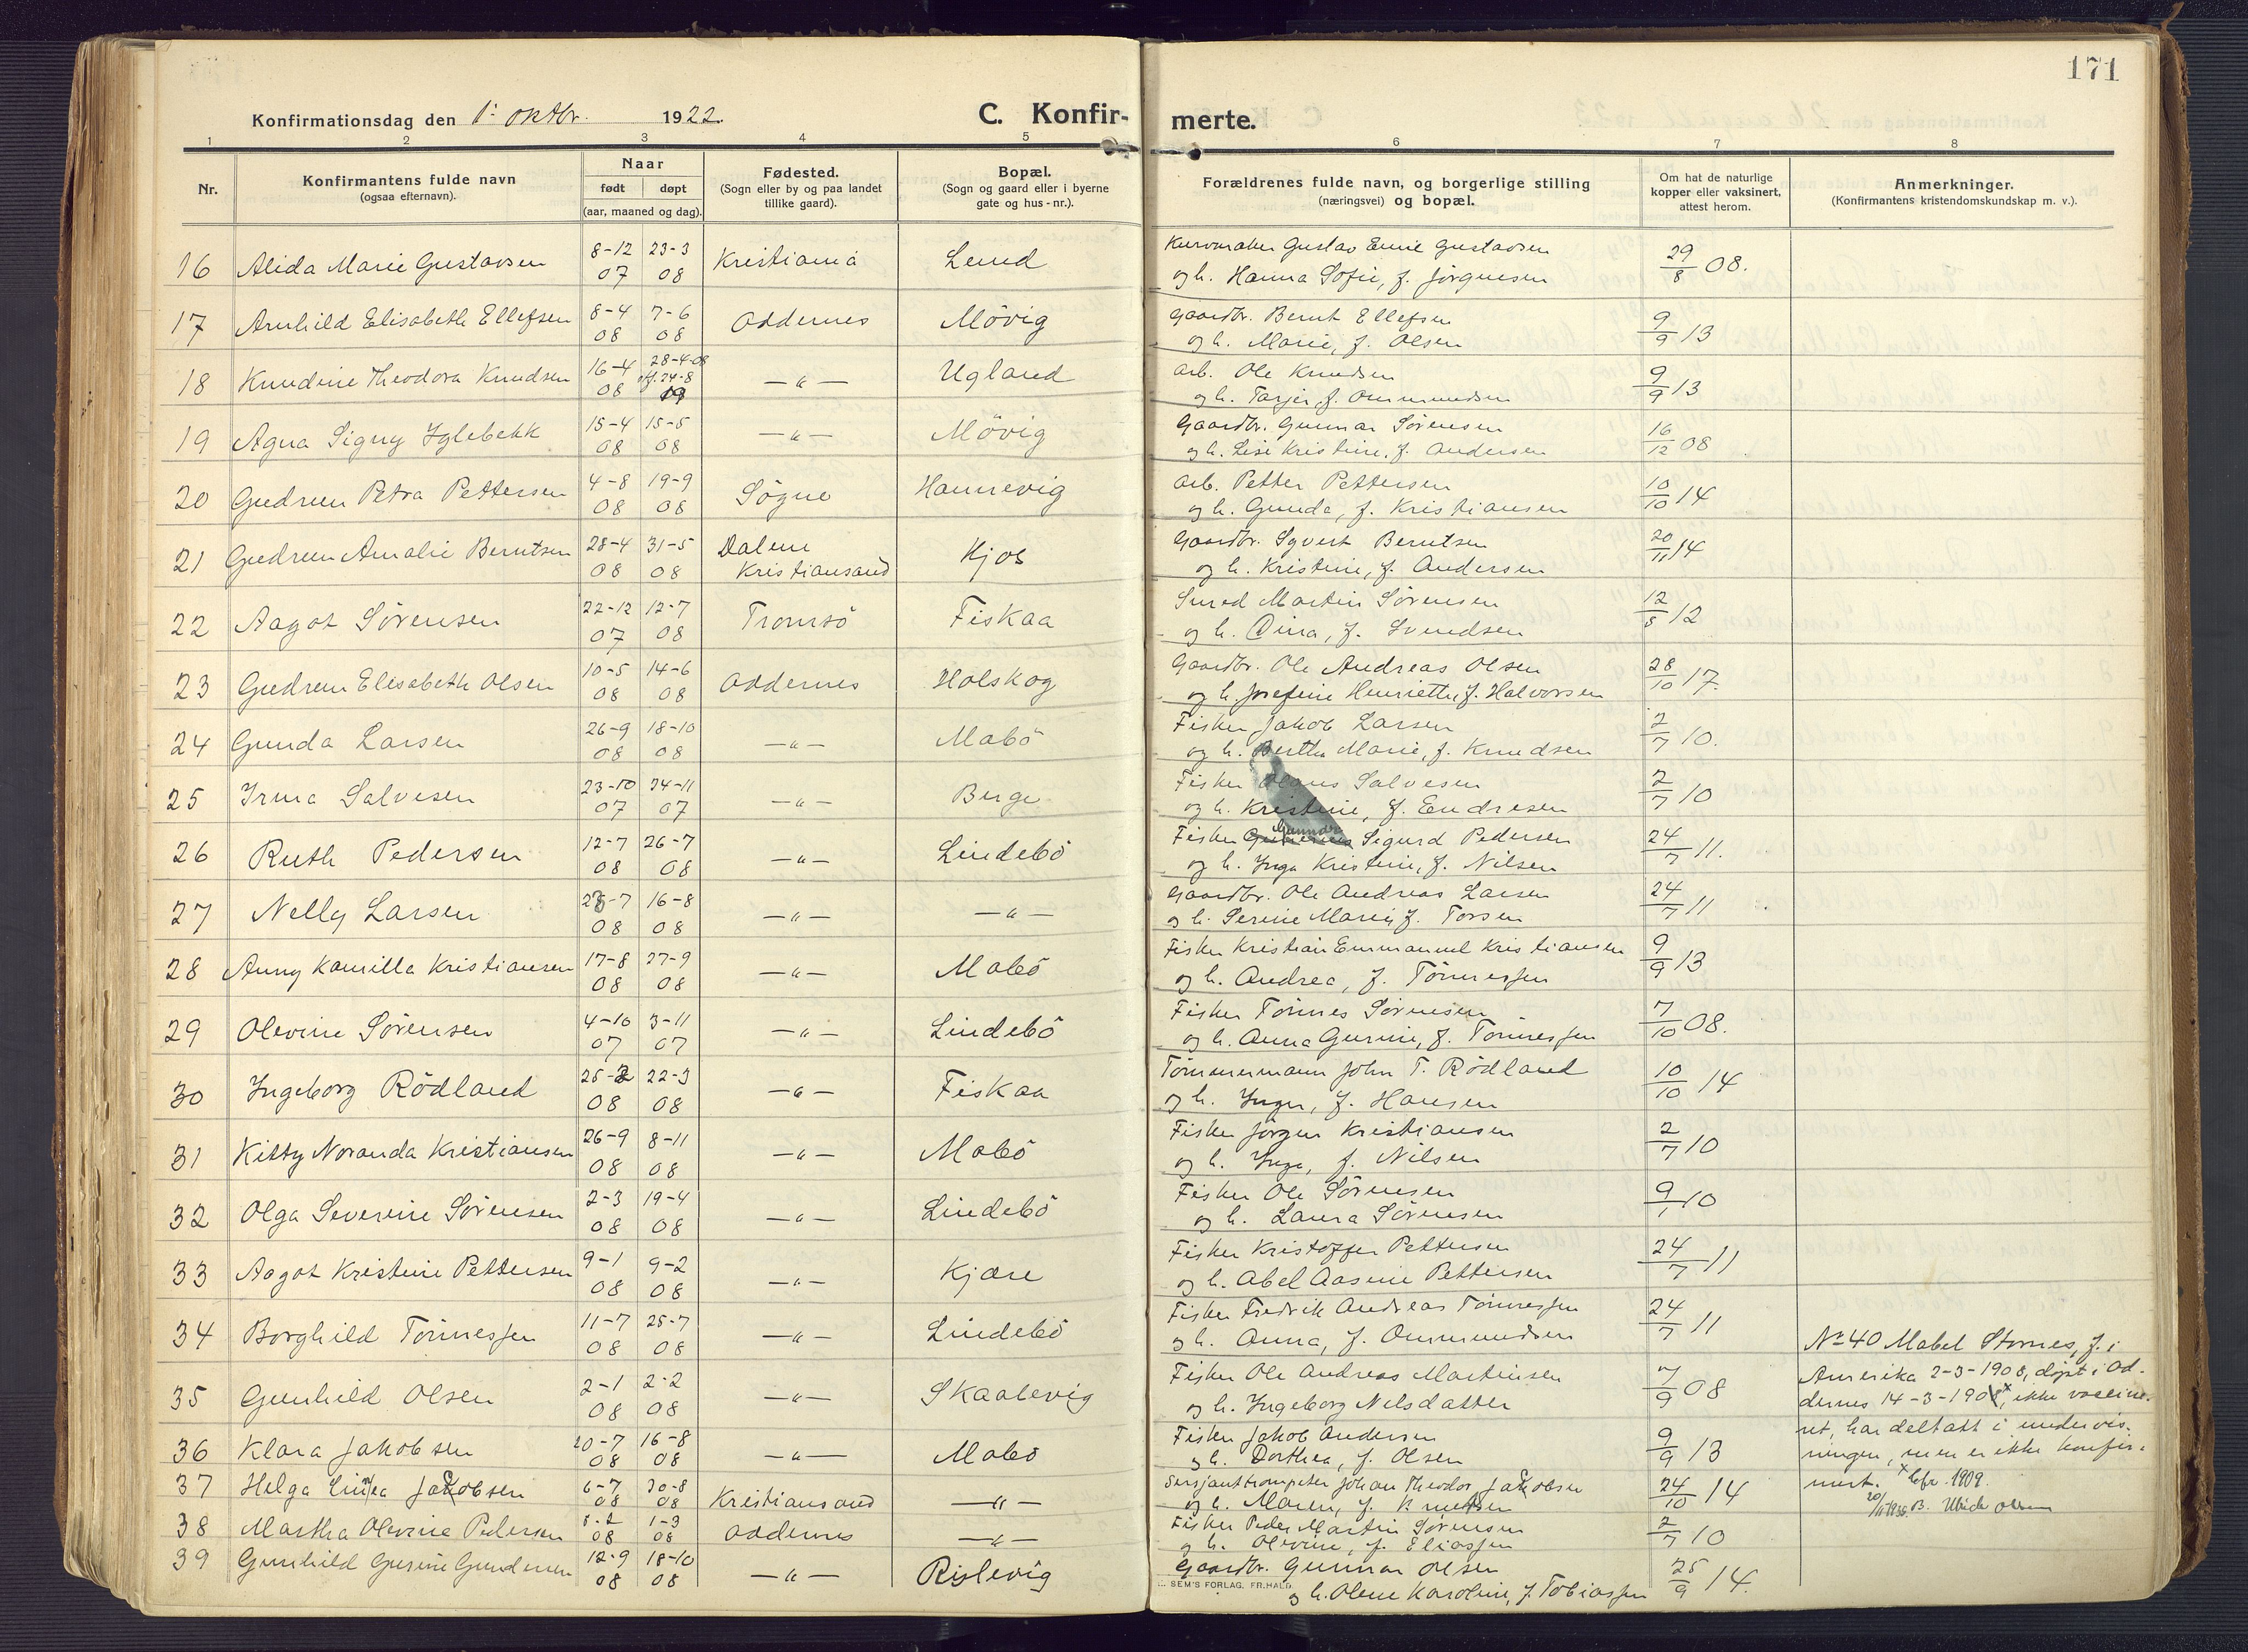 171
Konfirmationsdag den 1. oktbr. 1922.
C. Konfirmerte.
1 2 3 4 5 6 7 8
Nr.
Konfirmantens fulde navn
(ogsaa efternavn).
Naar
født døpt
(aar, maaned og dag).
Fødested.
(Sogn eller by og paa landet
tillike gaard).
Bopæl.
(Sogn og gaard eller i byerne
gate og hus-nr.).
Forældrenes fulde navn, og borgerlige stilling
(næringsvei) og bopæl.
Om hat de naturlige
kopper eller vaksinert,
attest herom.
Anmerkninger.
(Konfirmantens kristendomskundskap m. v.).
16 Alida Marie Gustavsen 8-12 07 23-3 08 Kristiania Lund Kurvmaker Gustav Emil Gustavsen
og h. Hanna Sofie, f. Jörgensen 29/8 08.
17 Arnhild Elisabeth Ellefsen 8-4 08 7-6 08 Oddernes Mövig Gaardbr. Bernt Ellefsen
og h. Marie, f. Olsen 9/9 13
18 Knudine Theodora Knudsen 16-4 08 28-4-08 24-8 Ugland arb. Ole Knudsen
—"— og h. Tarjer, f. Ommundsen 9/9 13
19 Agna Signy Iglebekk 15-4 08 15-5 08 —"— Mövig Gaardbr. Gunnar Sörensen
og h. Lise Kristine, f. Andersen 16/12 08
20 Gudrun Petra Pettersen 4-8 08 19-9 08 Sögne Hannevig arb. Petter Pettersen
og h. Gunda, f. Kristiansen 10/10 14
21 Gudrun Amalie Berntsen 28-4 08 31-5 08 Dalene Kristiansand Kjos Gaardbr. Syvert Berntsen
og h. Kristine, f. Andersen 20/11 14
22 Aagot Sörensen 22-12 07 12-7 08 Tromsö Fiskaa Smed Martin Sörensen
og h. Dina, f. Svendsen 12/5 12
23 Gudrun Elisabeth Olsen 10-5 08 14-6 08 Oddernes Holskog Gaardbr. Ole Andreas Olsen
og h. Josefine Henriette, f. Halvorsen 28/10 17.
24 Gunda Larsen 26-9 08 18-10 08 —"— Mabö Fisker Jakob Larsen
og h. Berthe Marie, f. Knudsen 2/7 10.
25 Irma Salvesen 23-10 07 24-11 07 —"— Berge Fisker Salvesen
og h. Kristine, f. Endresen 2/7 10
26 Ruth Pedersen 12-7 08 26-7 08 —"— Lindebö Fisker Gunnar Sigurd Pedersen
og h. Inga Kristine, f. Nilsen 24/7 11.
27 Nelly Larsen 28-7 08 16-8 08 —"— —"— Gaardbr. Ole Andreas Larsen
og h. Serine Marie, f. Torsen 24/7 11
28 Anny Kamilla Kristiansen 17-8 08 27-9 08 —"— Mabö Fisker Kristian Emmanuel Kristiansen
og h. Andrea, f. Tönnessen 9/9 13
29 Olevine Sörensen 4-10 07 3-11 07 —"— Lindebö Fisker Tönnes Sörensen
og h. Anna Gurine, f. Tönnessen 7/10 08.
30 Ingeborg Rödland 25-2 08 22-3 08 —"— Fiskaa Tömmermann John T. Rödland
og h. Inger, f. Hansen 10/10 14
31 Kitty Noranda Kristiansen 26-9 08 8-11 08 —"— Mabö Fisker Jörgen Kristiansen
og h. Inga, f. Nilsen 2/7 10
32 Olga Severine Sörensen 2-3 08 19-4 08 —"— Lindebö Fisker Ole Sörensen
og h. Laura Sörensen 9/1 10
33 Aagot Kristine Pettersen 9-1 08 9-2 08 —"— Kjære Fisker Kristoffer Pettersen
og h. Abel Aasine Pettersen 24/7 11
34 Borghild Tönnessen 11-7 08 25-7 08 —"— Lindebö Fisker Fredrik Andreas Tönnessen
og h. Anna, f. Ommundsen 24/7 11
35 Gunhild Olsen 2-1 08 2-2 08 —"— Skaalevig Fisker Ole Andreas Martinsen
og h. Ingeborg Nilsdatter 7/9 08
36 Klara Jakobsen 20-7 08 16-8 08 —"— Mabö Fisker Jakob Andersen
og h. Dorthea, f. Olsen 9/9 13
37 Helga Linea Jakobsen 6-7 08 30-8 08 Kristiansand —"— Sersjanttrompeter Johan Theodor Jakobsen
og h. Maren, f. Knutsen 24/10 14
38 Martha Olevine Pedersen 8-2 08 1-3 08 Oddernes —"— Fisker Peder Martin Sörensen
og h. Olevine, f. Eliassen 2/7 10
39 Gunhild Gurine Gundersen 12-9 08 18-10 08 —"— Rislevig Gaardbr. Gunnar Olsen
og h. Olene Karoline, f. Tobiassen 25/9 14.
SEM'S FORLAG, FR.HALD.
No 40 Mabel Stornes, f. i
Amerika 2-3-1908, döpt i Od-
dernes 14-3-190 x, ikke vaccine-
ret, har deltatt i undervis-
ningen, men er ikke konfir-
mert. x 1909.
B. Ulrich Olsen